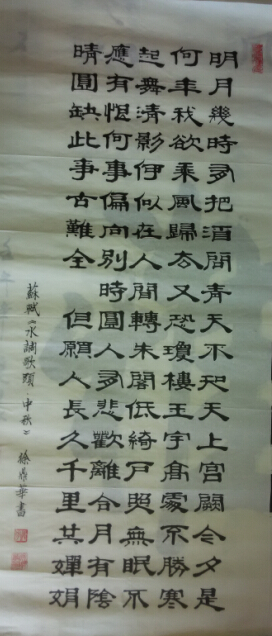 明月幾時有把酒問青天不知天上宮闕今夕是
何年我欲乘風歸去又恐瓊樓玉宇高處不勝寒
起舞清影伊似在人間轉朱閣低綺戶照無眠不
應有恨何事偏向別時圓人有悲歡離合月有陰
晴圓缺此事古難全但願人長久千里共嬋娟
蘇軾《水調歌頭·中秋》 徐鼎華書